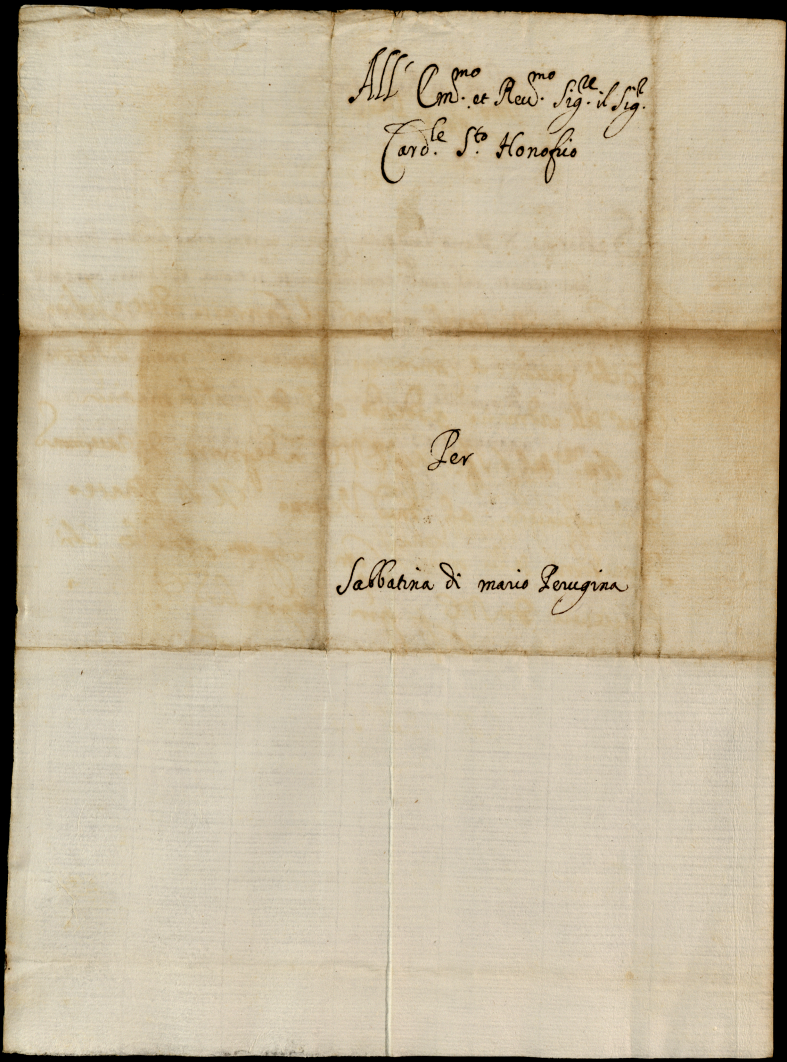 All' Em.mo et Reu.mo Sig.re il Sig.r
Card.le S.to Honofrio
Per
Sabbatina di mario Perugina